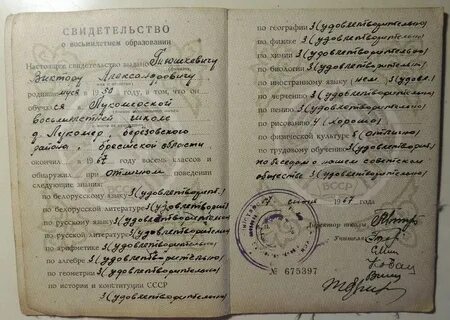 СВИДЕТЕЛЬСТВО
о восьмилетнем образовании
Настоящее свидетельство выдано Тюшкевичу
Виктору Александровичу
родившемуся в 19 году, в том, что он
обучался Лукомерской
восьмилетней школе
д. Лукомер, Берёзовского
района, Брестской области
окончил в 1967 году восемь классов и
обнаружил при отличном поведении
следующие знания:
по белорусскому языку 3 (удовлетворит.)
по белорусской литературе 3 (удовлетворит)
по русскому языку 3 (удовлетворительно)
по русской литературе 3 (удовлетворительно)
по арифметике 3 (удовлетворительно)
по алгебре 3 (удовлетворительно)
по геометрии 3 (удовлетворительно)
по истории и конституции СССР
3 (удовлетворительно)
по географии 3 (удовлетворительно)
по физике 3 (удовлетворительно)
по химии 3 (удовлетворительно)
по биологии 3 (удовлетворительно)
по иностранному языку (нем. 3 (удовл.)
по черчению 3 (удовлетворительно)
по пению 3 (удовлетворительно)
по рисованию 4 (хорошо)
по физической культуре 5 (отлично)
по трудовому обучению 3 (удовлетворит)
по беседам о нашем советском
обществе 3 (удовлетворительно)
БССР
БССР
июня 1967 года
Директор школы
Учителя:
№ 675397